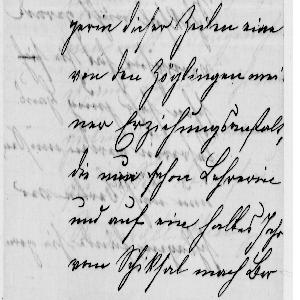 gerin dieser Zeilen eine
von den Zöglingen mei
ner Erziehungsanstalt,
die nun schon Lehrerin
und auf ein halbes Jahr
vom Schiksal nach Ber